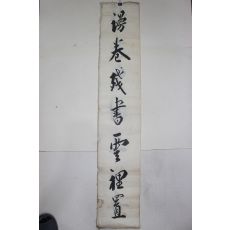 漫卷殘書雲裡置